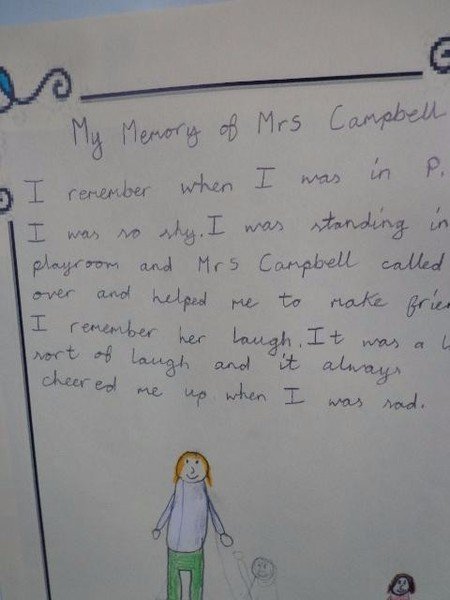 My Memory of Mrs Campbell
I remember when I was in P.
I was so shy. I was standing in
playroom and Mrs Campbell called
over and helped me to make frien
I remember her laugh. It was a l
sort of laugh and it always
cheered me up when I was sad.